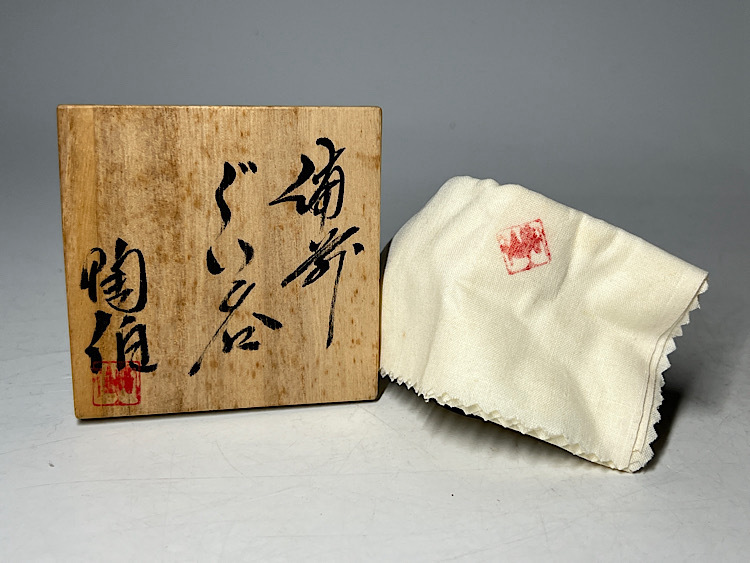 備前
ぐい呑
陶伯